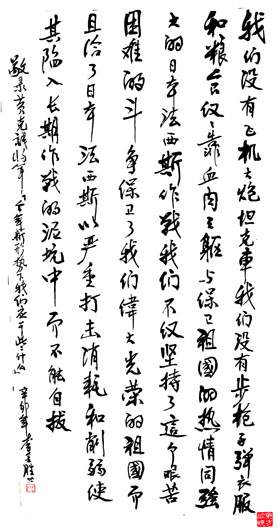 我们没有飞机大炮坦克車我们没有步枪子弹衣服
和粮食仅仅靠血肉之躯与保卫祖國的热情同強
大的日本法西斯作战我们不仅坚持了这个艰苦
困难的斗争保卫了我们偉大光荣的祖國而
且给了日本法西斯以严重打击消耗和削弱使
其陷入长期作战的泥坑中而不能自拔
敬录黄克诚将军
辛卯年